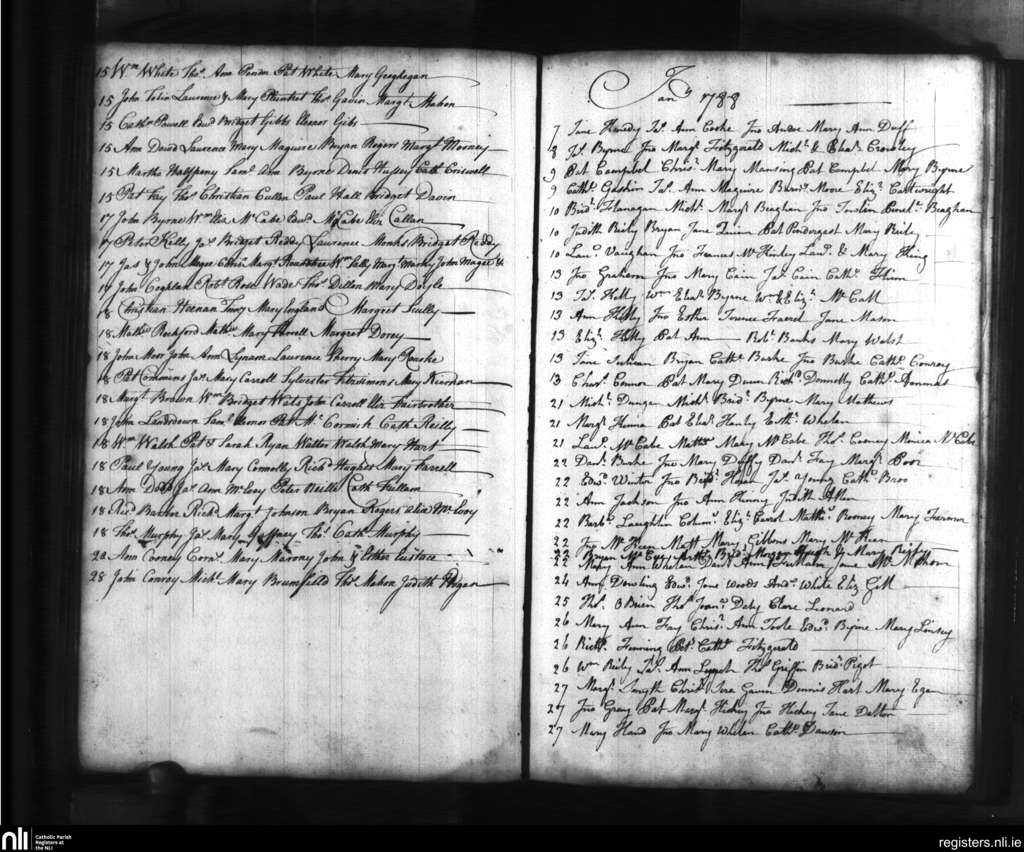 15 Wm White Thos. Ann Pat White Mary Geoghegan
15 John Laurence & Mary Plunket Thos. Gavin Margt Mahon
15 Cathe Powell Edwd Bridget Gibbs Eleonor Gibs
15 Ann Dowd Laurence Mary Maguire Bryan Rogers Margt Morney
15 Martha Halfpeny Saml. Ann Byrne Denis Hussey Cath Criswell
15 Pat Fay Thos. Christian Cullen Paul Hall Bridget Davin
17 John Byrne Wm Eliz McCabe Edwd McCabe Eliz Callan
17 Peter Kelly Jas. Bridget Reddy Laurence Monks Bridget Reddy
17 Jas & John Magee Margt Wm Lally Margt John Magee &
17 John Coghlan Robt Rose Wade Thos. Dillon Mary Doyle
18 Christian Heenan Mary England Margret Scully
18 Mathw Rochford Mathw Mary Farrell Margret Dorey
18 John Morr John Ann Lynam Laurence Sherry Mary Rourke
18 Pat Commins Jas. Mary Carroll Sylvester Fitzsimons Mary Kiernan
18 Margt. Brown Wm Bridget Wats John Carroll Eliz Fairbrother
18 John Landsdown Saml Elenor Pat McCormick Cath Reilly
18 Wm Walsh Pat & Sarah Ryan Walter Walsh Mary Hart
18 Paul Young Jas. Mary Connolly Richd Hughes Mary Farrell
18 Ann Jas. Ann McEvoy Peter Reille Cath Fullam
18 Ricd Barker Richd Margt Johnson Bryan Rogers Alice McEvoy
18 Thos. Murphy Jas. Mary Thos. Cath Murphy
20 Ann Cooney Corns. Mary Marony John & Esther Eustace
28 John Conroy Michl. Mary Brumfield Thos. Mahon Judith Hogan
Jany 1788
7 Jane Hardy Jas. Ann Cooke Jno Mary Ann Duff
8 Js. Byrne Jno Margt Fitzgerald Michl. & Elizh. Crowley
9 Pat Campbel Chrisr. Mary Mansing Pat Campbel Mary Byrne
9 Cathe. Jas. Ann Maguire Barw. Move Elizh. Cartwright
10 Bridt. Flanagan Michl. Margt Beaghan Jno Beaghan
10 Judith Reily Bryan Jane Quinn Pat Pendergest Mary Reily
10 Lawe. Vaughan Jno Frances McKinley Lawe. & Mary King
13 Jno Graham Jno Mary Cain Jas. Cain Cathe. Flinn
13 Js. Kelly Wm Elizh. Byrne Wm & Elizh. McCall
13 Ann Kelly Jno Esther Terence Farrel Jane Mason
13 Elizh. Kelly Pat Ann Robt. Banks Mary Walst
13 Jane Bryan Cathe Burke Jno Burke Cathe. Conroy
13 Chars. Connor Pat Mary Dunn Richd. Donnolly Cathe.
21 Michl. Dungan Michl. Bridt. Byrne Mary Mathews
21 Margt Hanna Pat Elizh. Hanby Esth. Whelan
21 Lawe. McCabe Mattw Mary McCabe Thos. Cooney Monica McCabe
22 Davd. Burke Jno Mary Duffy Davd. Fay Margt. Poor
22 Edwd Winter Jno Bridt. Jas. Young Cathe.
22 Ann Jackson Jno Ann Henry Judith
22 Barthw. Laughlin Edmd. Elizh. Carrol Matthw. Rooney Mary Farmer
22 Jno McKeon Matt Mary Gibbons Mary McKeon
22 Bryan McEvoy Bridt. & Mary
22 Mary Ann Whelan Davd. Ann Jane McMahon
24 Ann Dowling Edwd. Jane Woods Andw. White Eliz Gill
25 Thos. O Brien Thos. Joana Daly Clare Leonard
26 Mary Ann Fay Chrisr. Ann Toole Edwd. Byrne Mary Linsey
26 Richd. Fenning Pat. Cathe. Fitzgerald
26 Wm Reily Jas. Ann Lynch Thos. Griffin Bridt. Pigot
27 Margt. Smyth Christr. Gavin Dennis Hart Mary Egan
27 Jno Gray Pat Margt. Hickey Jno Hickey Jane Dalton
27 Mary Hand Jno Mary Whelan Cathe. Dawson
nli
Catholic Parish
Registers at
the NLI
registers.nli.ie